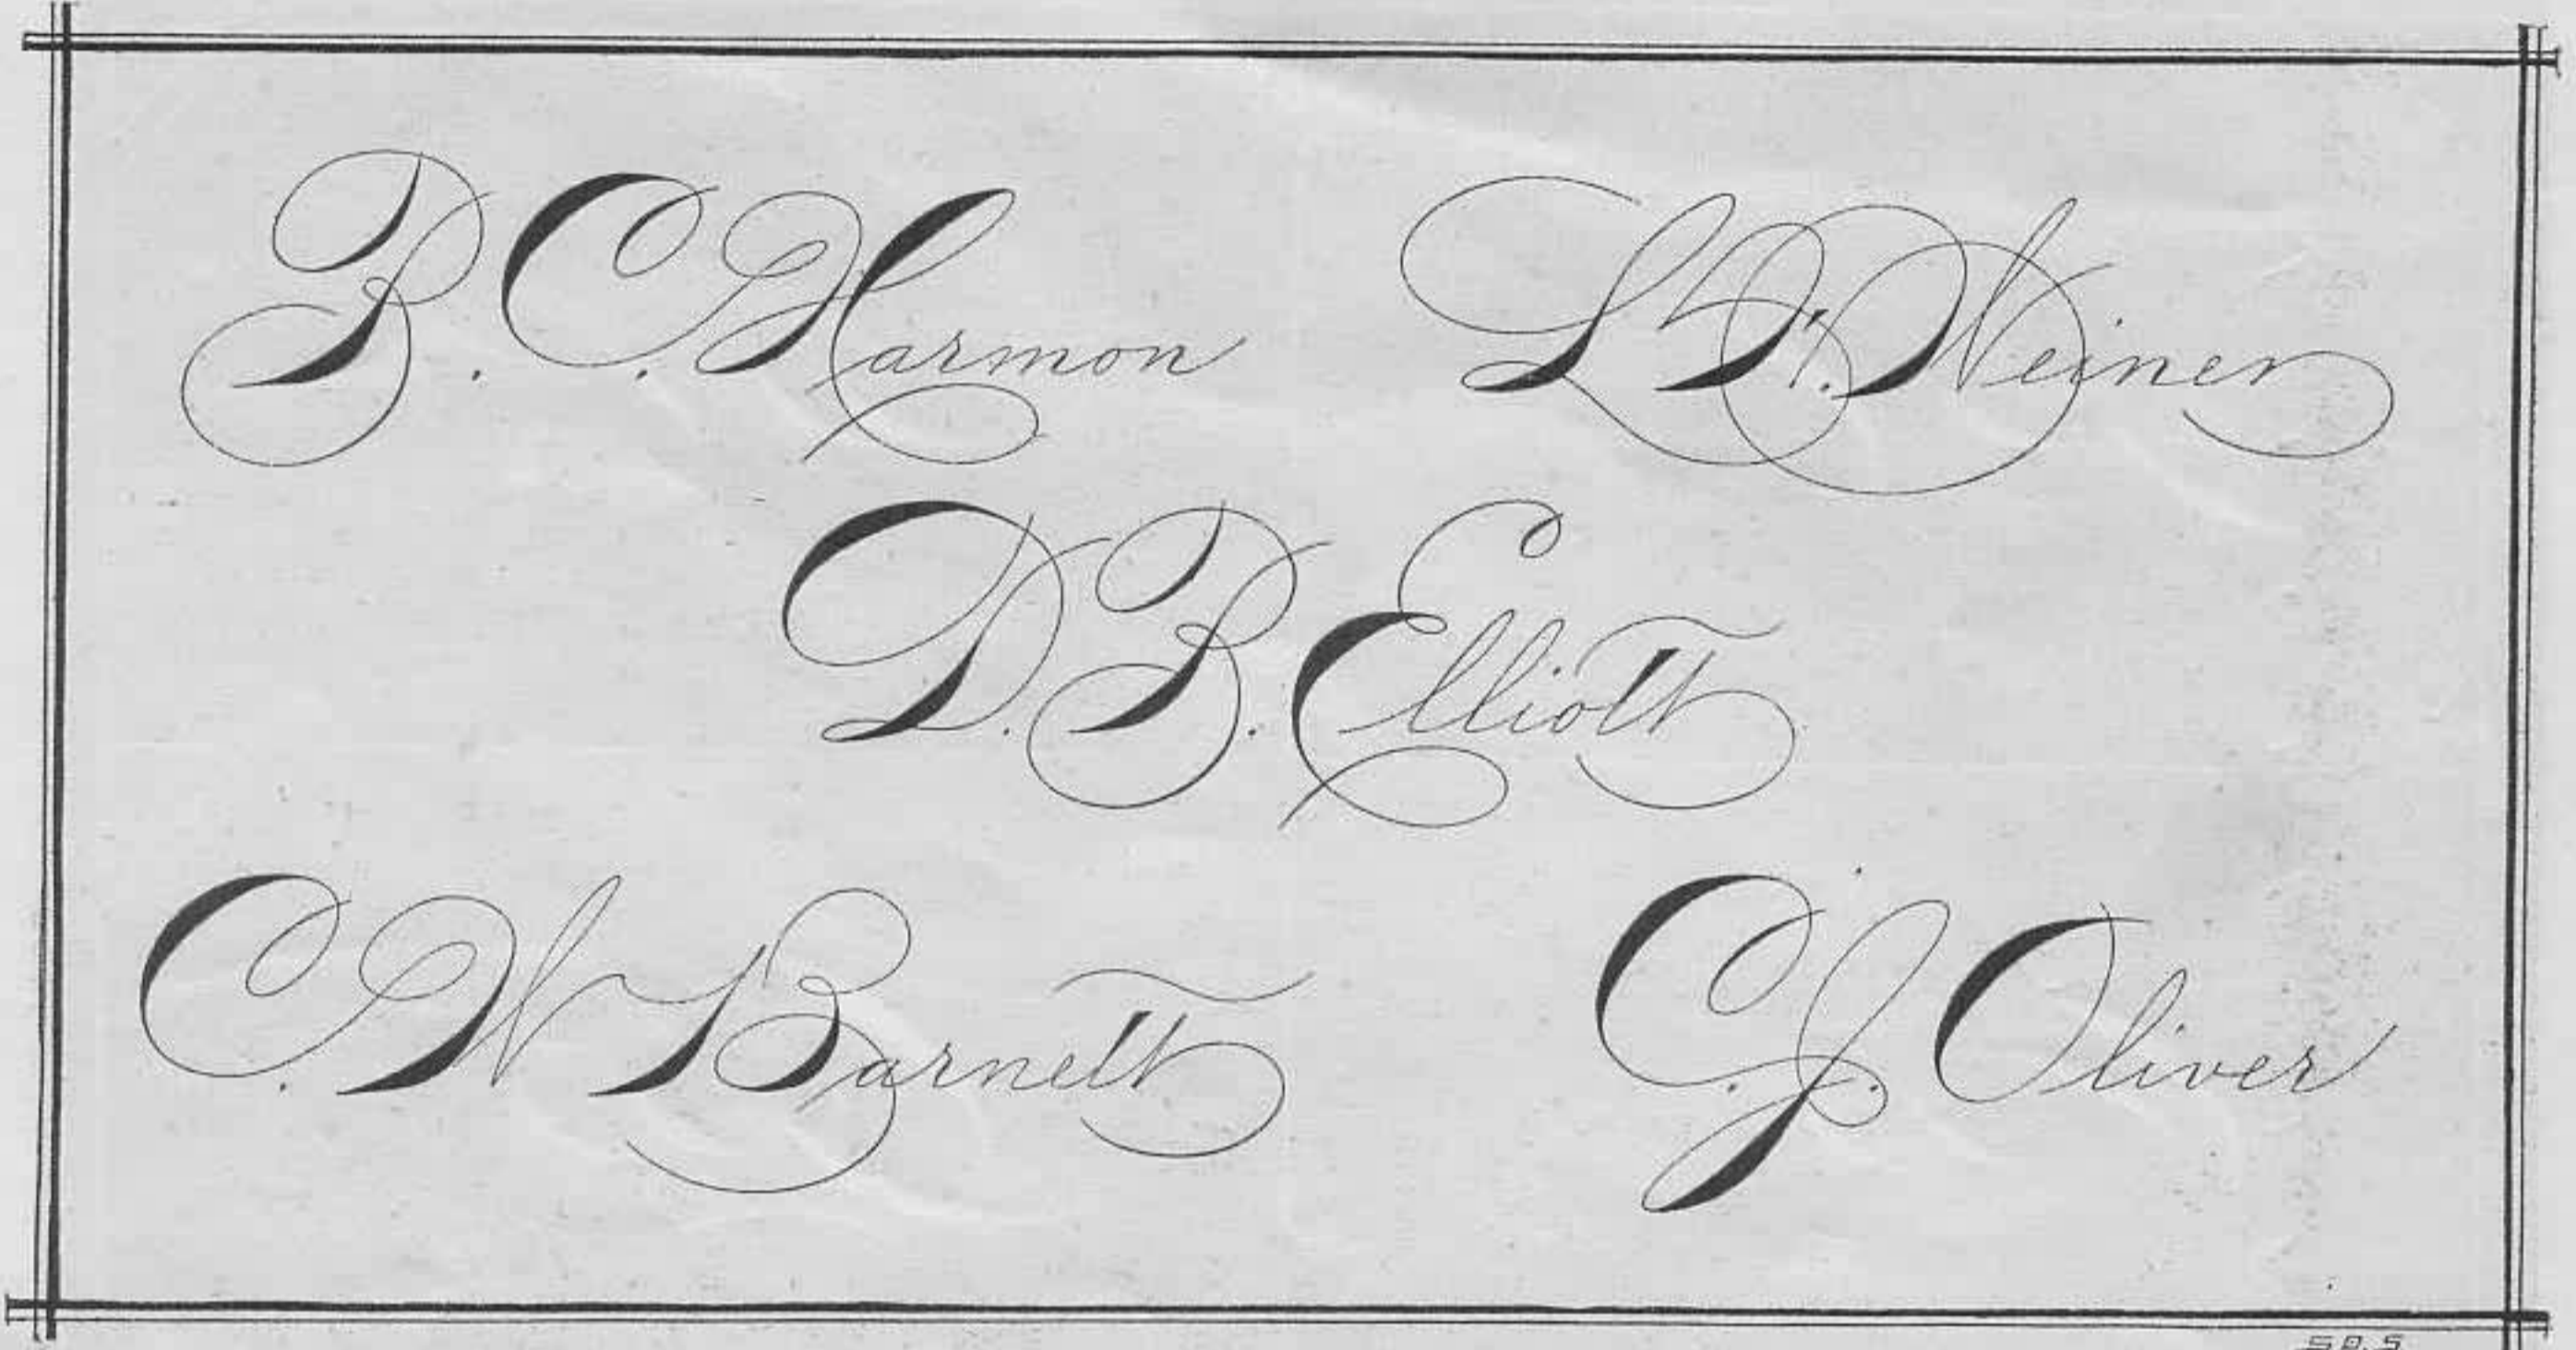 B. C. Harmon
Weiner
D. B. Elliott
C. W Barnett
C. J. Oliver